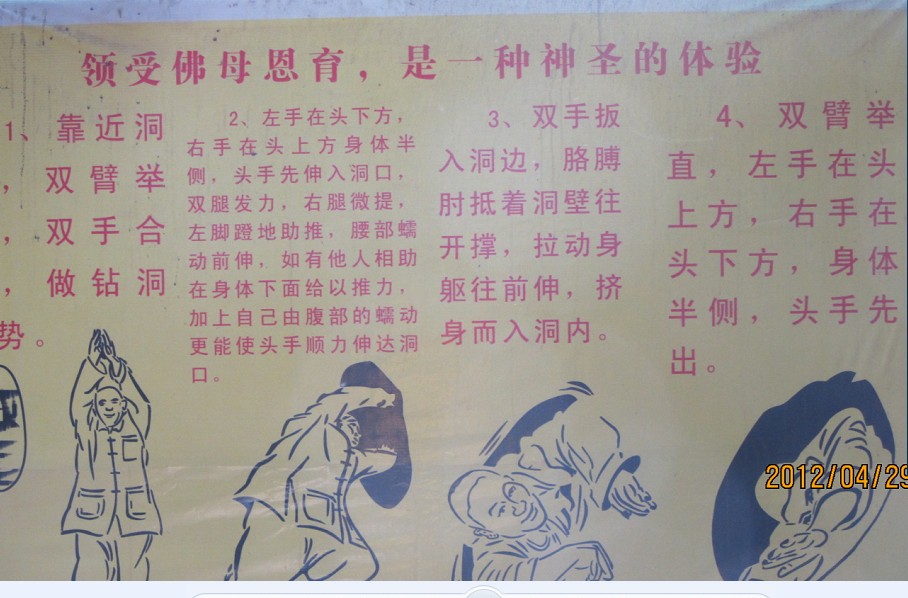 领受佛母恩育，是一种神圣的体验
1、靠近洞
，双臂举
，双手合
，做钻洞
势。
2、左手在头下方，
右手在头上方身体半
侧，头手先伸入洞口，
双腿发力，右腿微提，
左脚蹬地助推，腰部蠕
动前伸，如有他人相助
在身体下面给以推力，
加上自己由腹部的蠕动
更能使头手顺力伸达洞
口。
3、双手扳
入洞边，胳膊
肘抵着洞壁往
开撑，拉动身
躯往前伸，挤
身而入洞内。
4、双臂举
直，左手在头
上方，右手在
头下方，身体
半侧，头手先
出。
2012/04/29